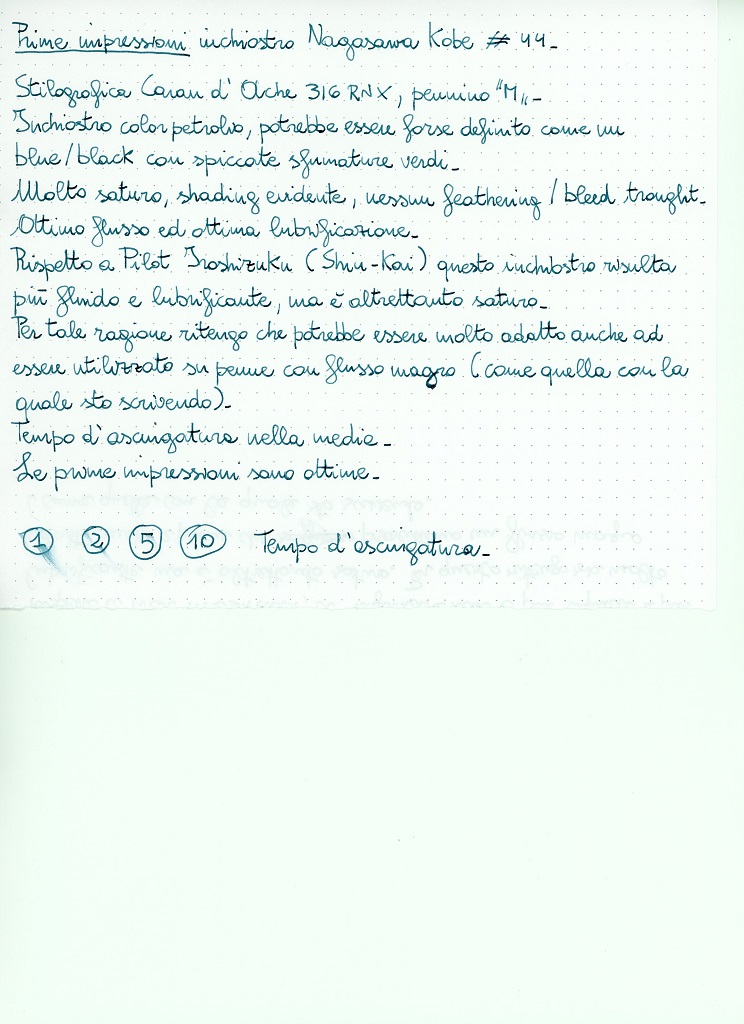 Prime impressioni inchiostro Nagasawa Kobe # 44_
Stilografica Caran d'Ache 316 RNX, pennino "M"_
Inchiostro color petrolio, potrebbe essere forse definito come un
blue/black con spiccate sfumature verdi_
Molto saturo, shading evidente, nessun feathering / bleed trought_
Ottimo flusso ed ottima lubrificazione_
Rispetto a Pilot Iroshizuku (Shin-Kai) questo inchiostro risulta
più fluido e lubrificante, ma è altrettanto saturo_
Per tale ragione ritengo che potrebbe essere molto adatto anche ad
essere utilizzato su penne con flusso magro (come quella con la
quale sto scrivendo)_
Tempo d'asciugatura nella media_
Le prime impressioni sono ottime_
1 2 5 10 Tempo d'asciugatura_